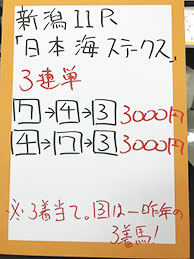 新潟11R
「日本海ステークス」
3連単
7→4→3 3000円
4→7→3 3000円
※3着当て。3は一昨年の
3着馬!